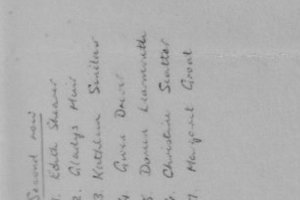 Second row
1. Edith Shearer
2. Gladys Muir
3. Kathleen
4. Gwen Drever
5 Doreen Learmonth
6. Christine Scatter
7. Margaret Groat